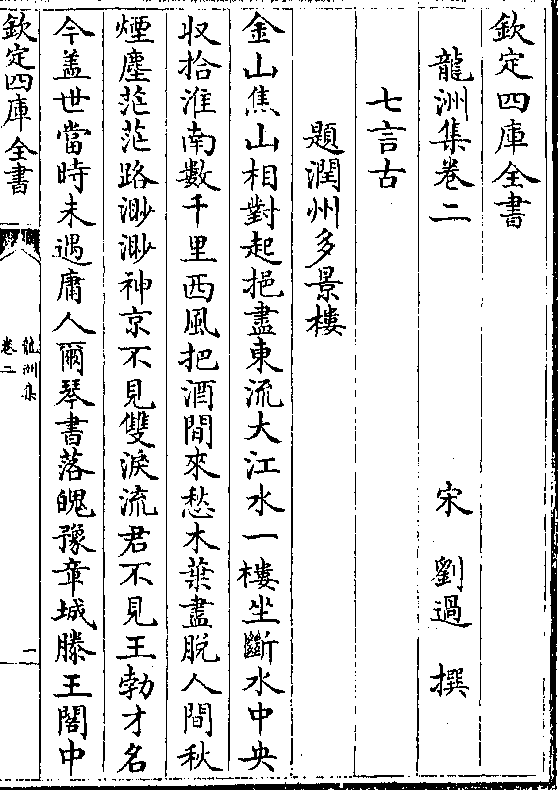 欽定四庫全書
龍洲集卷二
宋 劉過 撰
七言古
題潤州多景樓
金山焦山相對起挹盡東流大江水一樓坐斷水中央
収拾淮南數千里西風把酒閒來愁木葉盡脫人間秋
煙塵茫茫路渺渺神京不見雙淚流君不見王勃才名
今盖世當時未遇庸人爾琴書落魄豫章城滕王閣中
欽定四庫全書
龍洲集
卷二
一